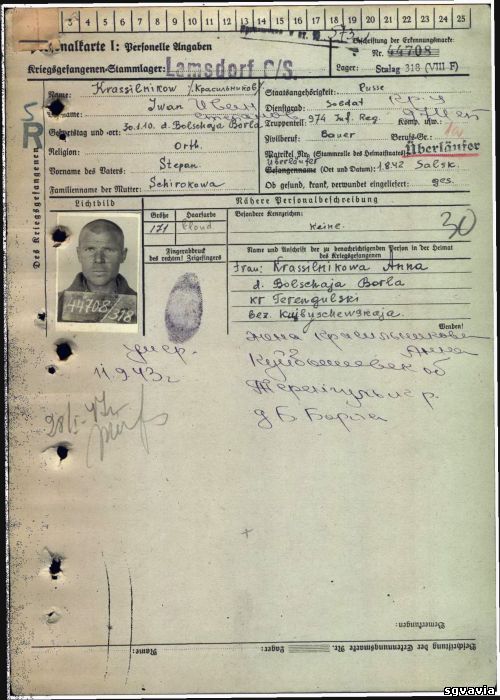 3 4 5 6 7 8 9 10 11 12 13 14 15 16 17 18 19 20 21 22 23 24 25
Personalkarte I: Personelle Angaben
Beschriftung der Erkennungsmarke
Nr. 44708
Kriegsgefangenen-Stammlager: Lamsdorf C/S.
Lager: Stalag 318 (VIII F)
Des Kriegsgefangenen
Name: Krassilnikow /Красильников/
Staatsangehörigkeit: Russe
Vorname: Iwan Иван
Dienstgrad: Soldat
Truppenteil: 974 Inf. Reg. Komp. usw.:
Geburtstag und -ort: 30.1.10. d. Bolschaja Borla
Zivilberuf: Bauer Berufs-Gr.:
Religion: Orth.
Matrikel Nr. (Stammrolle des Heimatstaates)
Überläufer
Vorname des Vaters: Stepan.
Überläufer
Gefangennahme (Ort und Datum): 1.8.42 Salsk.
Familienname der Mutter: Schirokowa
Ob gesund, krank, verwundet eingeliefert: ges.
Lichtbild
Nähere Personalbeschreibung
Größe Haarfarbe Besondere Kennzeichen:
171 blond Keine.
30
Fingerabdruck
des rechten! Zeigefingers
Name und Anschrift der zu benachrichtigenden Person in der Heimat
des Kriegsgefangenen
Frau: Krassilnikowa Anna
d. Bolschaja Borla
kr Terengulski
bez. Kujbyschewskaja.
44708/318
Wenden!
умер.
11.9.43г
Жена Красильникова
Анна
Куйбышевск об
д. Б. Борла
Bemerkungen:
Beschriftung der Erkennungsmarke Nr.
Lager:
Name:
sgvavia